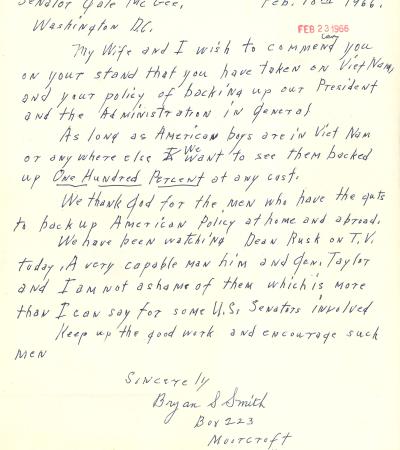 Senator Gale McGee, Feb. 18th 1966.
Washington D.C.
FEB 23 1966
My Wife and I wish to commend you
on your stand that you have taken on Viet Nam,
and your policy of backing up our President
and the Administration in General
As long as American boys are in Viet Nam
or any where else We want to see them backed
up One Hundred Percent at any cost.
We thank God for the men who have the guts
to back up American Policy at home and abroad.
We have been watching Dean Rusk on T.V.
today. A very capable man him and Gen. Taylor
and I am not ashame of them which is more
than I can say for some U.S. Senators involved
Keep up the good work and encourage such
men
Sincerely
Bryan S Smith
Box 223
Moorcroft